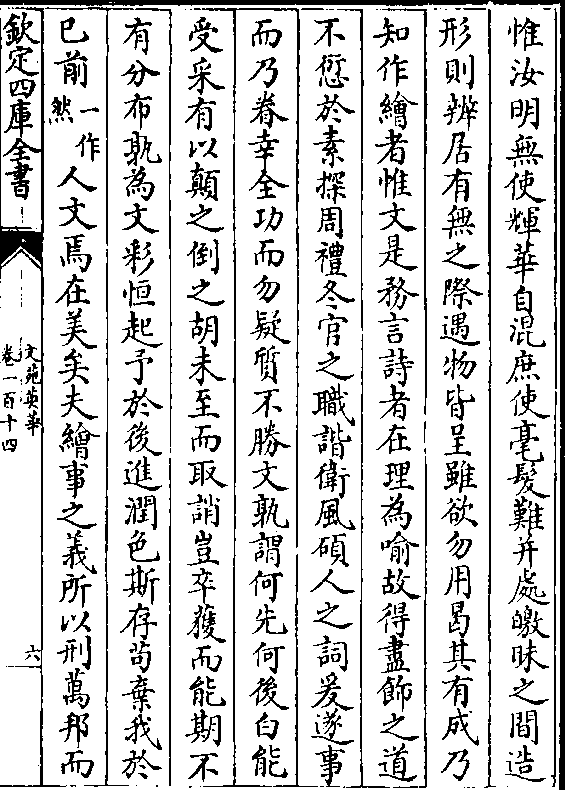 惟汝明無使輝華自混庶使毫髮難并處皦昧之間造
形則辨居有無之際遇物皆呈雖欲勿用曷其有成乃
知作繪者惟文是務言詩者在理為喻故得盡飾之道
不愆於素探周禮冬官之職諧衛風碩人之詞爰遂事
而乃眷幸全功而勿疑質不勝文孰謂何先何後白能
受采有以顛之倒之胡未至而取誚豈卒獲而能期不
有分布孰為文彩恒起予於後進潤色斯存茍棄我於
已前一作然人文焉在美矣夫繪事之義所以刑萬邦而
欽定四庫全書
文苑英華
卷一百十四
六